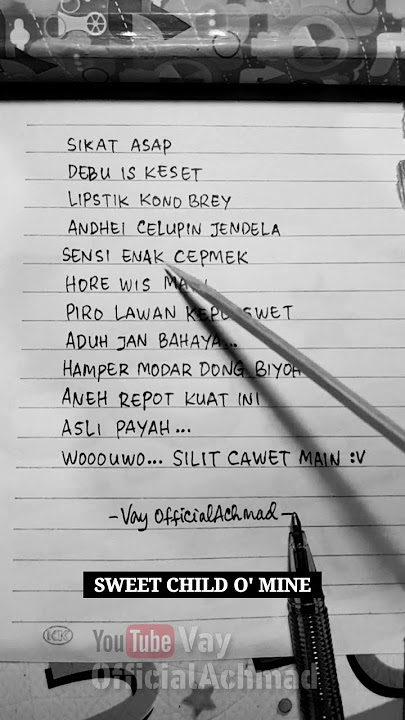 SIKAT ASAP
DEBU IS KESET
LIPSTIK KOND BREY
ANDHEI CELUPIN JENDELA
SENSI ENAK CEPMEK
HORE WIS
PIRO LAWAN SWET
ADUH JAN BAHAYA...
HAMPER MODAR DONG BIYOH
ANEH REPOT KUAT INI
ASLI PAYAH...
WOOOUWO... SILIT CAWET MAIN :V
-Vay OfficialAchmad-
SWEET CHILD O' MINE
KK
YouTube Vay
OfficialAchmad